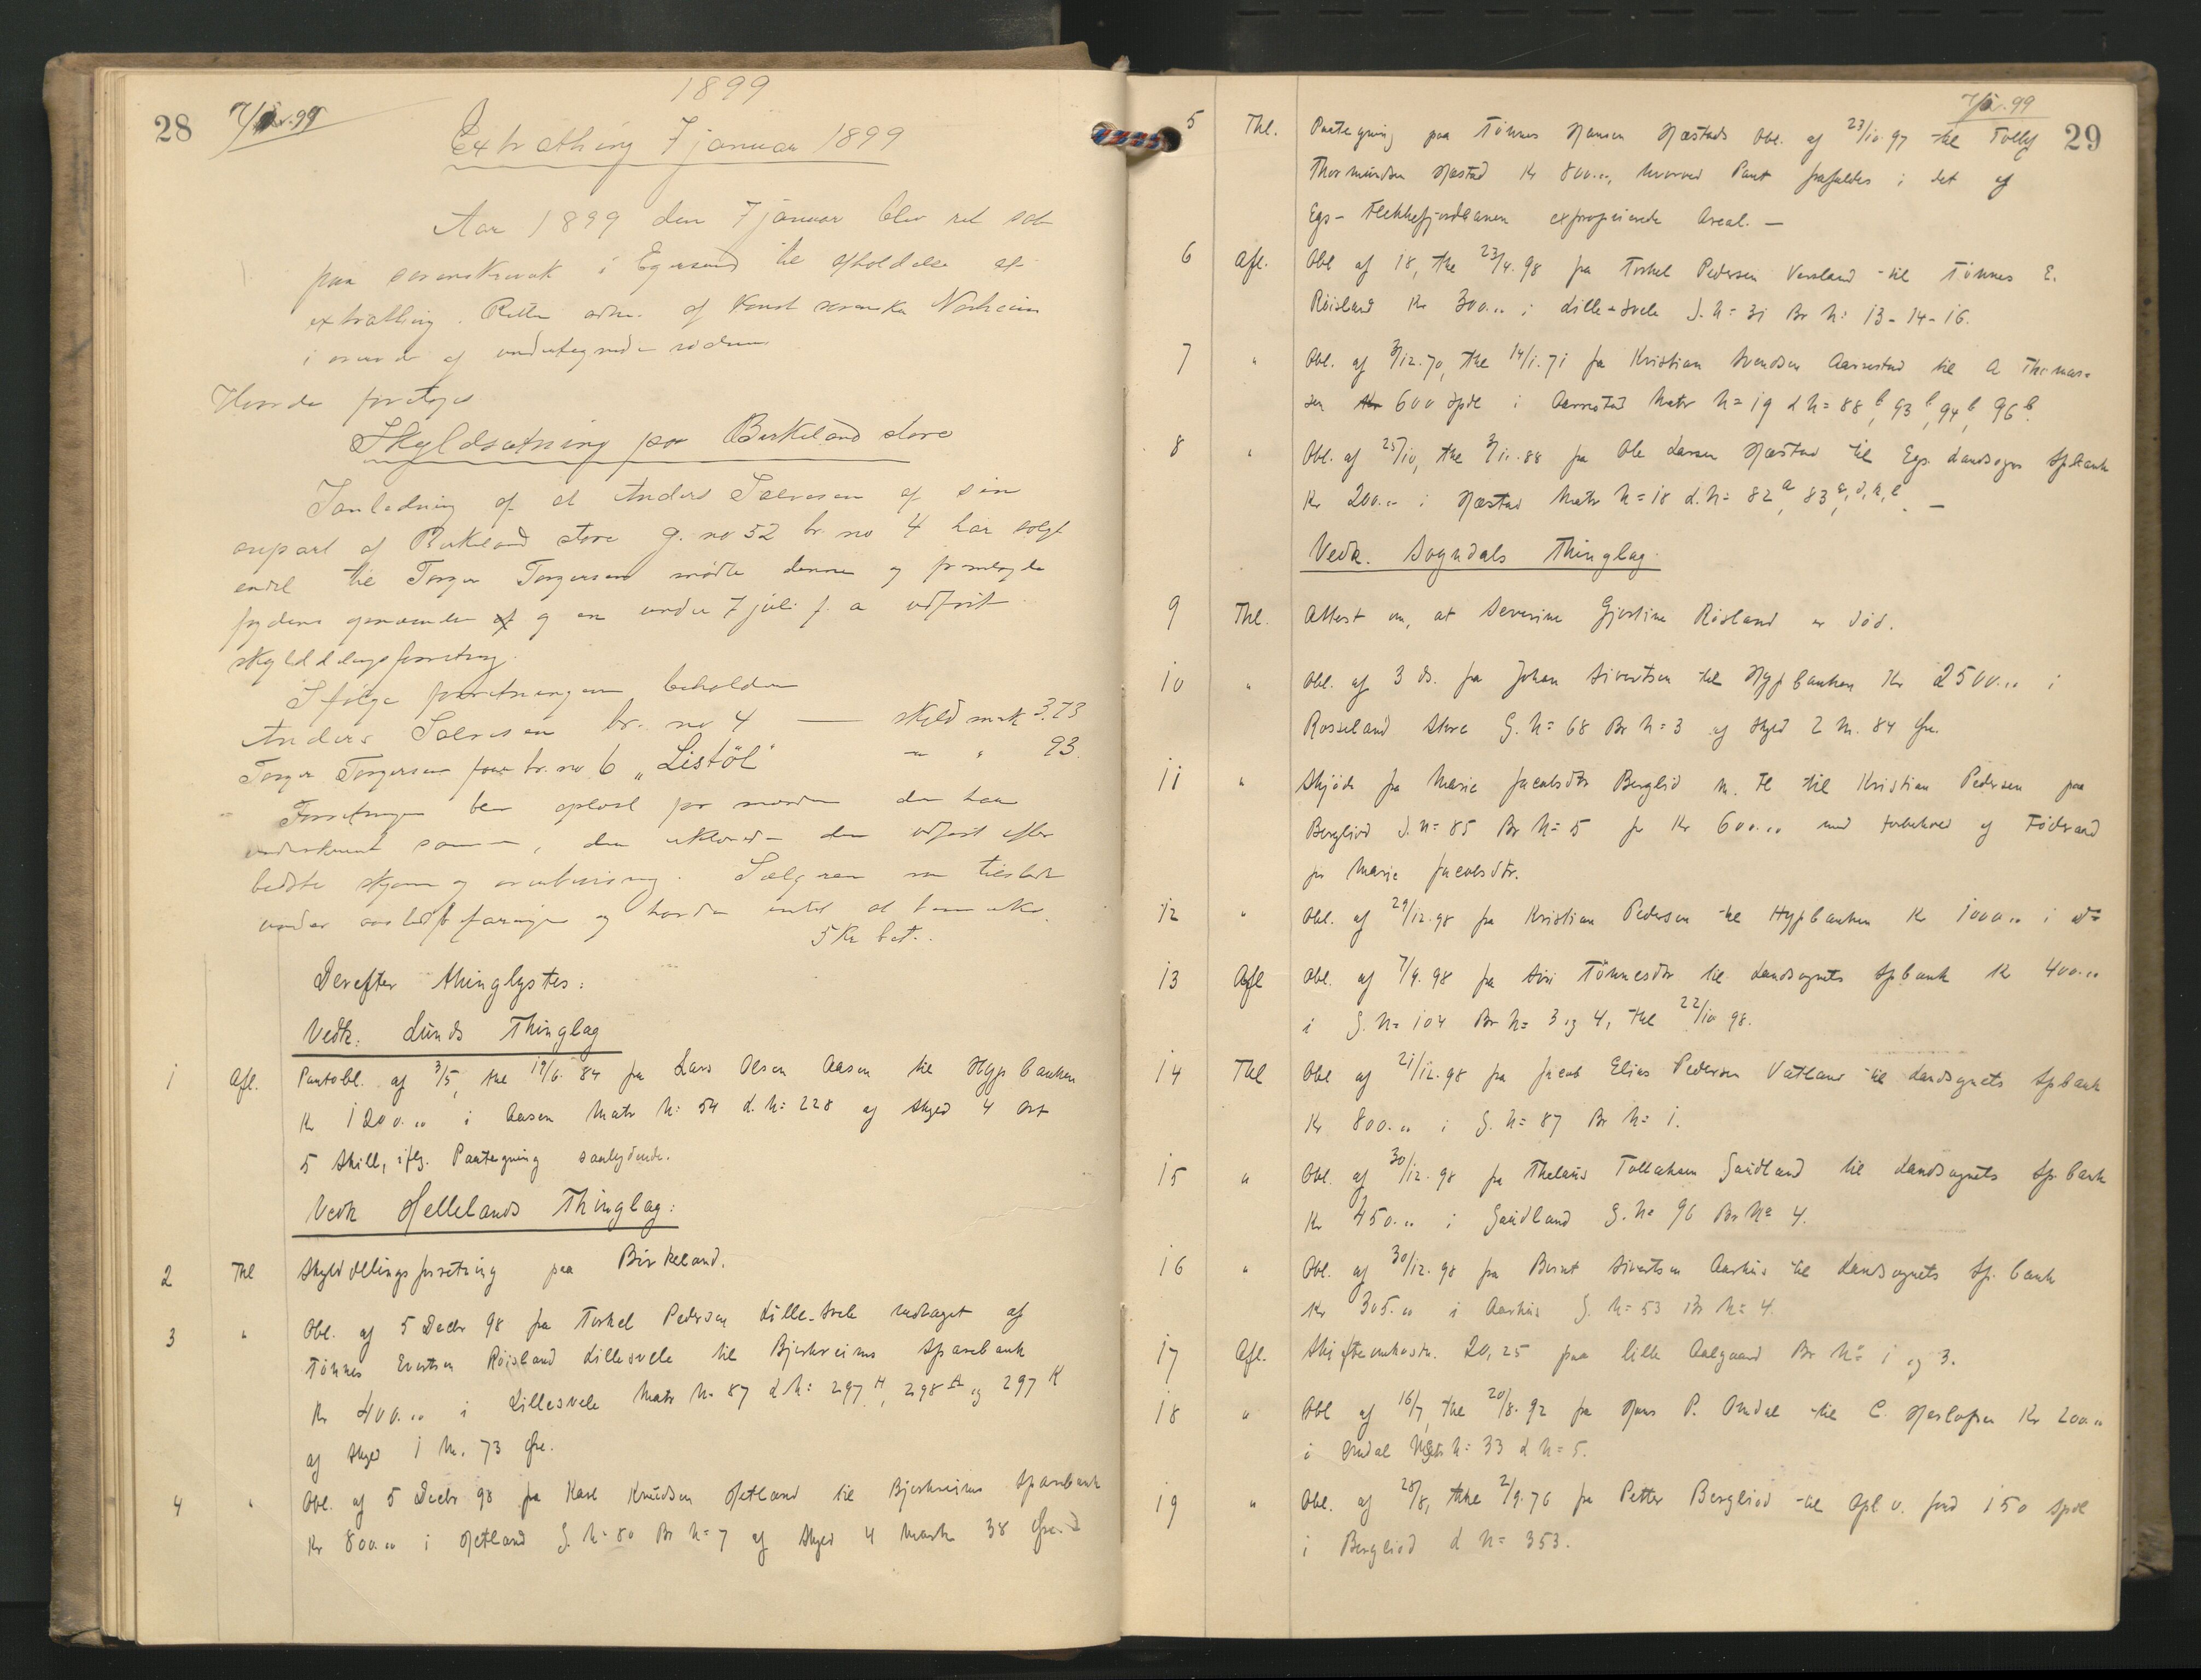 1899
28 7/1.99
Extrathing 7 januar 1899
Aar 1899 den 7 januar blev ret sat
paa sorenskriverk i Egersund til afholdelse af
extrathing. Retten adm. af Konst sorenskr Norheim
i overvær af undertegnede vidner
Hvorda foretoges
Skyldsætning paa Birkeland store
I anledning af at Anders Salvesen af sin
anpart af Birkeland store g. no 52 br. no 4 har solgt
endel til Torger Torgersen mødte denne og fremlagde
og en under 7 juli f. a. udført
skylddelingsforretning.
Ifølge forretningen beholder
Anders Salvesen br. no 4 — skyld mark 3.73
Torger Torgersen br. no 6 „Listöl" — " 93.
Forretningen blev oplæst for mændene der har
underskrevet samme, den udført efter
bedste skjøn og overbevisning. Sælgeren var tilstede
under og havde intet at bemærke.
5 Kr bet..
Derefter thinglystes:
Vedk. Lunds Thinglag
1 Afl. Pantobl. af 3/5, thl 19/6 84 fra Lars Olsen Aasen til Hyp banken
Kr 1200.,, i Aasen Matr N= 54 L.N= 228 af Skyld 4 Ort
5 Skill, iflg. Paategning saalydende.
Vedk Hellelands Thinglag:
2 Thl Skylddelingsforretning paa Birkeland.
3 " Obl. af 5 Decbr 98 fra Torkel Pedersen Lille-Svele vedtaget af
Tönnes Evertsen Röisland Lillesvele til Bjerkreims Sparebank
Kr 400.,, i Lillesvele Matr N= 87 L N= 297 H, 298 A og 297 K
af Skyld 1 M. 73 Øre.
4 " Obl. af 5 Decbr 98 fra Karl Knudsen Hetland til Bjerkreims Sparebank
Kr 800.,, i Hetland G N= 80 Br N= 7 af Skyld 4 Mark 38 Øre.
7/1.99
29
5 Thl. Paategning paa Tönnes Hansen Hæstads Obl. af 23/10 97 til Tollef
Thormundsen Hæstad Kr 800.,, hvorved Pant frafaldes i det af
Egs-Flekkefjordbanen exproprierede Areal. —
6 Afl. Obl af 18, thl 23/4. 98 fra Torkel Pedersen Versland til Tönnes E.
Röisland Kr 300.,, i Lille-Svele G. N= 31 Br N= 13-14-16.
7 " Obl. af 3/12. 70, thl 14/1. 71 fra Kristian Svendsen Aarrestad til A Thomas-
sen 600 Spdl i Aarrestad Matr N= 19 L N= 88 b, 93 b, 94 b, 96 b.
8 " Obl. af 25/10, thl 3/11. 88 fra Ole Larsen Hæstad til Egs. Landsogns Spbank
Kr 200.,, i Hæstad Matr N= 18 L. N= 82 a, 83 —
Vedk. Sogndals Thinglag.
9 Thl. Attest om, at Severine Gjertine Rösland er död.
10 " Obl. af 3 ds. fra Johan Sivertsen til Hypbanken Kr 2500.,, i
Rosseland Store G. N= 68 Br N= 3 af Skyld 2 M. 84 Øre.
11 " Skjöde fra Marie Jacobsdtr Berglid m. Fl til Kristian Pedersen paa
Bergliod G. N= 85 Br N= 5 for Kr 600.,, med Forbehold af Föderaad
for Marie Jacobsdtr.
12 " Obl. af 29/12. 98 fra Kristian Pedersen til Hypbanken Kr 1000.,, i do
13 Afl Obl. af 7/9. 98 fra Siri Tönnesdtr til Landsognets Spbank Kr 400.,,
i G. N= 104 Br N= 3 og 4, thl 22/10 98.
14 Thl Obl af 21/12. 98 fra Jacob Elias Pedersen Vatland til Landsognets Spbank
Kr 800.,, i G. N= 87 Br N= 1.
15 " Obl. af 30/12. 98 fra Thelaus Tollaksen Gaudland til Landsognets Sp. bank
Kr 450.,, i Gaudland G. N= 96 Br N= 4.
16 " Obl. af 30/12. 98 fra Bernt Sivertsen Aarhus til Landsognets Sp. bank
Kr 305.,, i Aarhus G. N= 53 Br N= 4.
17 Afl. Skifteomkostn. 20,25 paa lille Aalgaard Br N= 1 og 3.
18 " Obl af 16/7, thl 20/8. 92 fra Hans P. Omdal til C. Kr 200.,,
i Omdal Matr N= 33 L N= 5.
19 " Obl. af 28/8, thl 2/9. 76 fra Petter Bergliod til Opl. v. fond 150 Spdl
i Bergliod L N= 353.